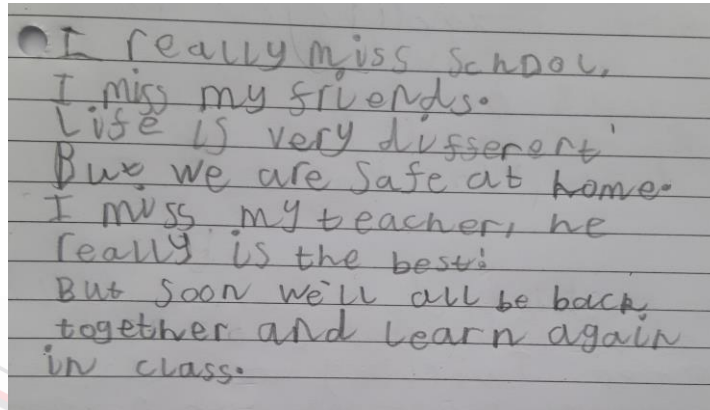 I really miss school,
I miss my friends.
Life is very different'
But we are safe at home.
I miss my teacher, he
really is the best!
But soon we'll all be back
together and learn again
in class.